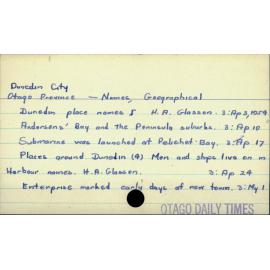 Dunedin City
Otago Province — Names, Geographical
Dunedin place names I H.A. Glasson. 3:Ap3,1954
Andersons' Bay and the Peninsula suburbs. 3:Ap.10
Submarine was launched at Pelichet Bay. 3:Ap 17
Places around Dunedin (4) Men and ships live on in
Harbour names. H.A. Glasson. 3:Ap 24
Enterprise marked early days of new town. 3:My 1.
OTAGO DAILY TIMES